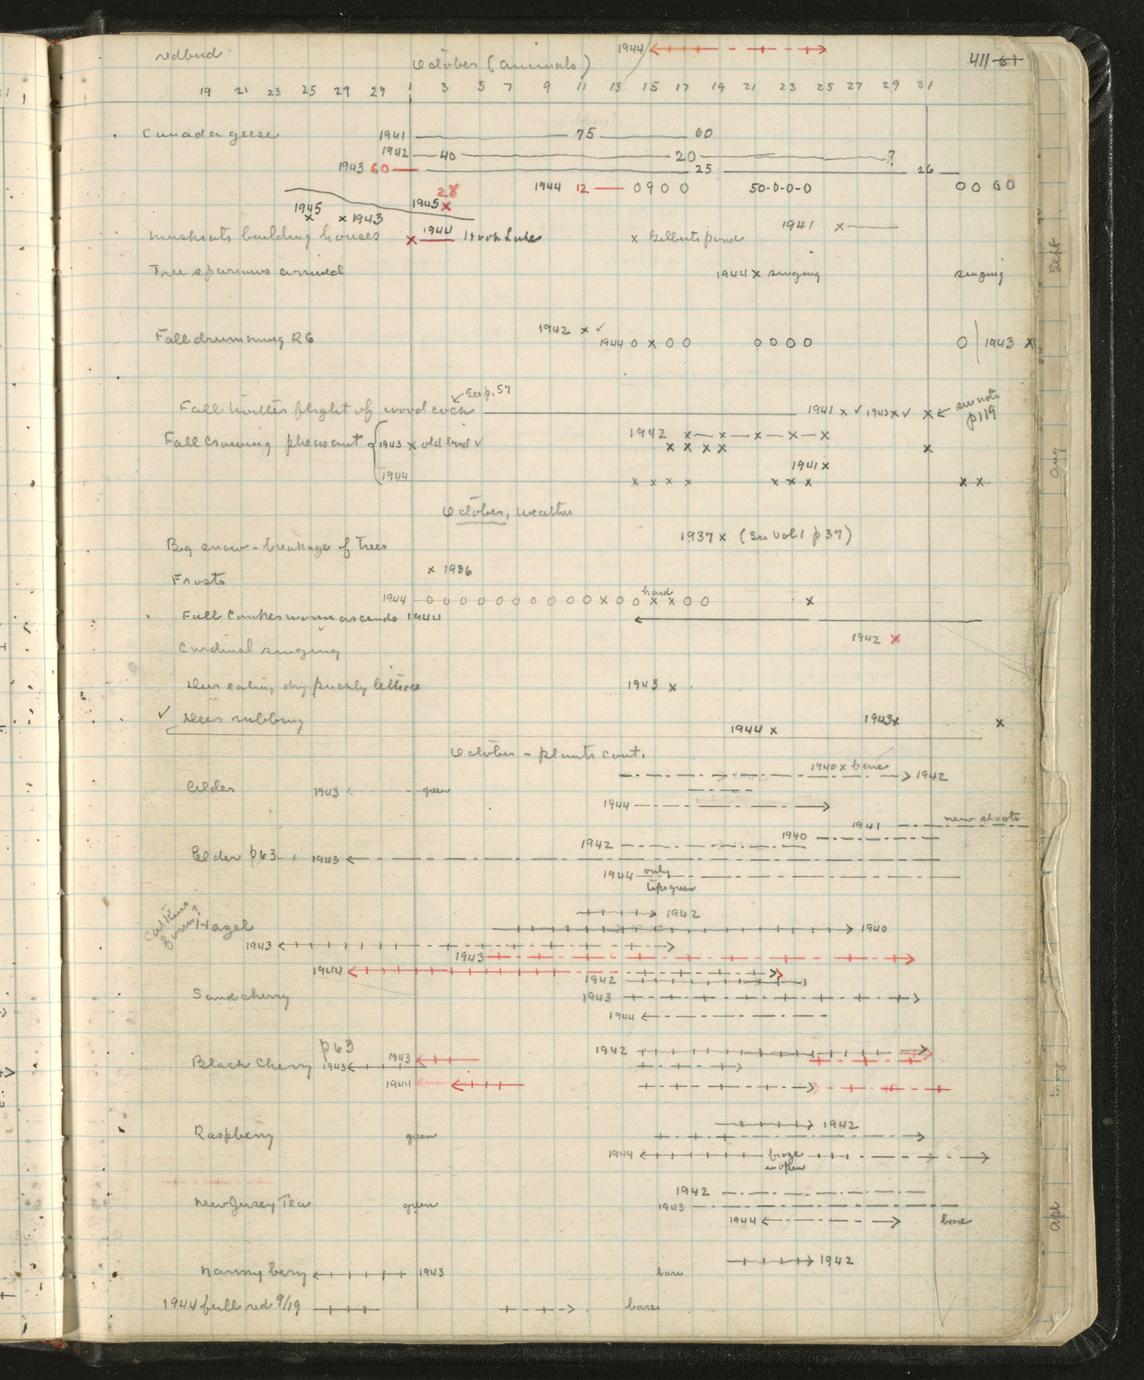 redbud 1944 411 61
October (animals)
19 21 23 25 27 29 1 3 5 7 9 11 13 15 17 19 21 23 25 27 29 31
Canada geese 1941 75 60
1942 40 20 ?
1943 60 25 26
1944 12 0 9 0 0 50-0-0-0 0 0 60
28
1945 x
1945 x x 1943
muskrats building houses x 1944 x Gilberts pond 1941 x
Tree sparrows arrived 1944 x singing singing
Fall drumming RG 1942 x ✓
1944 0 x 0 0 0 0 0 0 0 1943 x
See p. 57
Fall flight of woodcock 1941 x ✓ 1943 x x ✓ x see note p119
Fall crowing pheasant 1943 x old bird ✓ 1942 x x x x x
x x x x x
1941 x
1944 x x x x x x x x x
October, weather
Big snow - breakage of trees 1937 x (See Vol 1 p 37)
x 1936
Frosts
1944 0 0 0 0 0 0 0 0 0 0 x 0 0 x x 0 0 x
hard
Fall Cankerworm ascends 1944
1942 x
Cardinal singing
Deer eating dry prickly lettuce 1943 x
✓ Deer rubbing 1943 x x
1944 x
October - plants cont.
1940 x bare
1942
Alder 1943 green
1944
1941 new shoots
1940
1942
Elder p63 1943
1944 only tips green
Catkins
Hazel 1942
1940
1943
1943
1944
1942
Sand cherry 1943
1944
p63
Black Cherry 1943 1943 1942
1944
Raspberry green 1942
1944 froze
New Jersey Tea green 1942
1943
1944 bare
Nannyberry 1943 1942
bare
1944 full red 9/19 bare
Sept
Aug
Apl